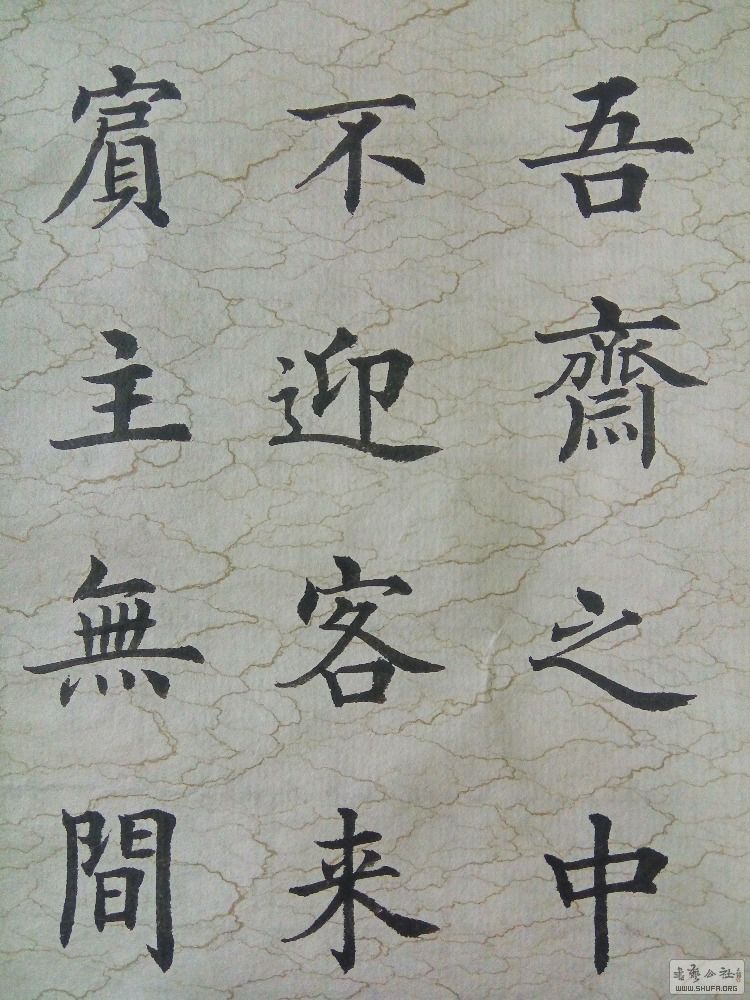 吾齋之中
不迎客来
賓主無間
WWW.SHUFA.ORG